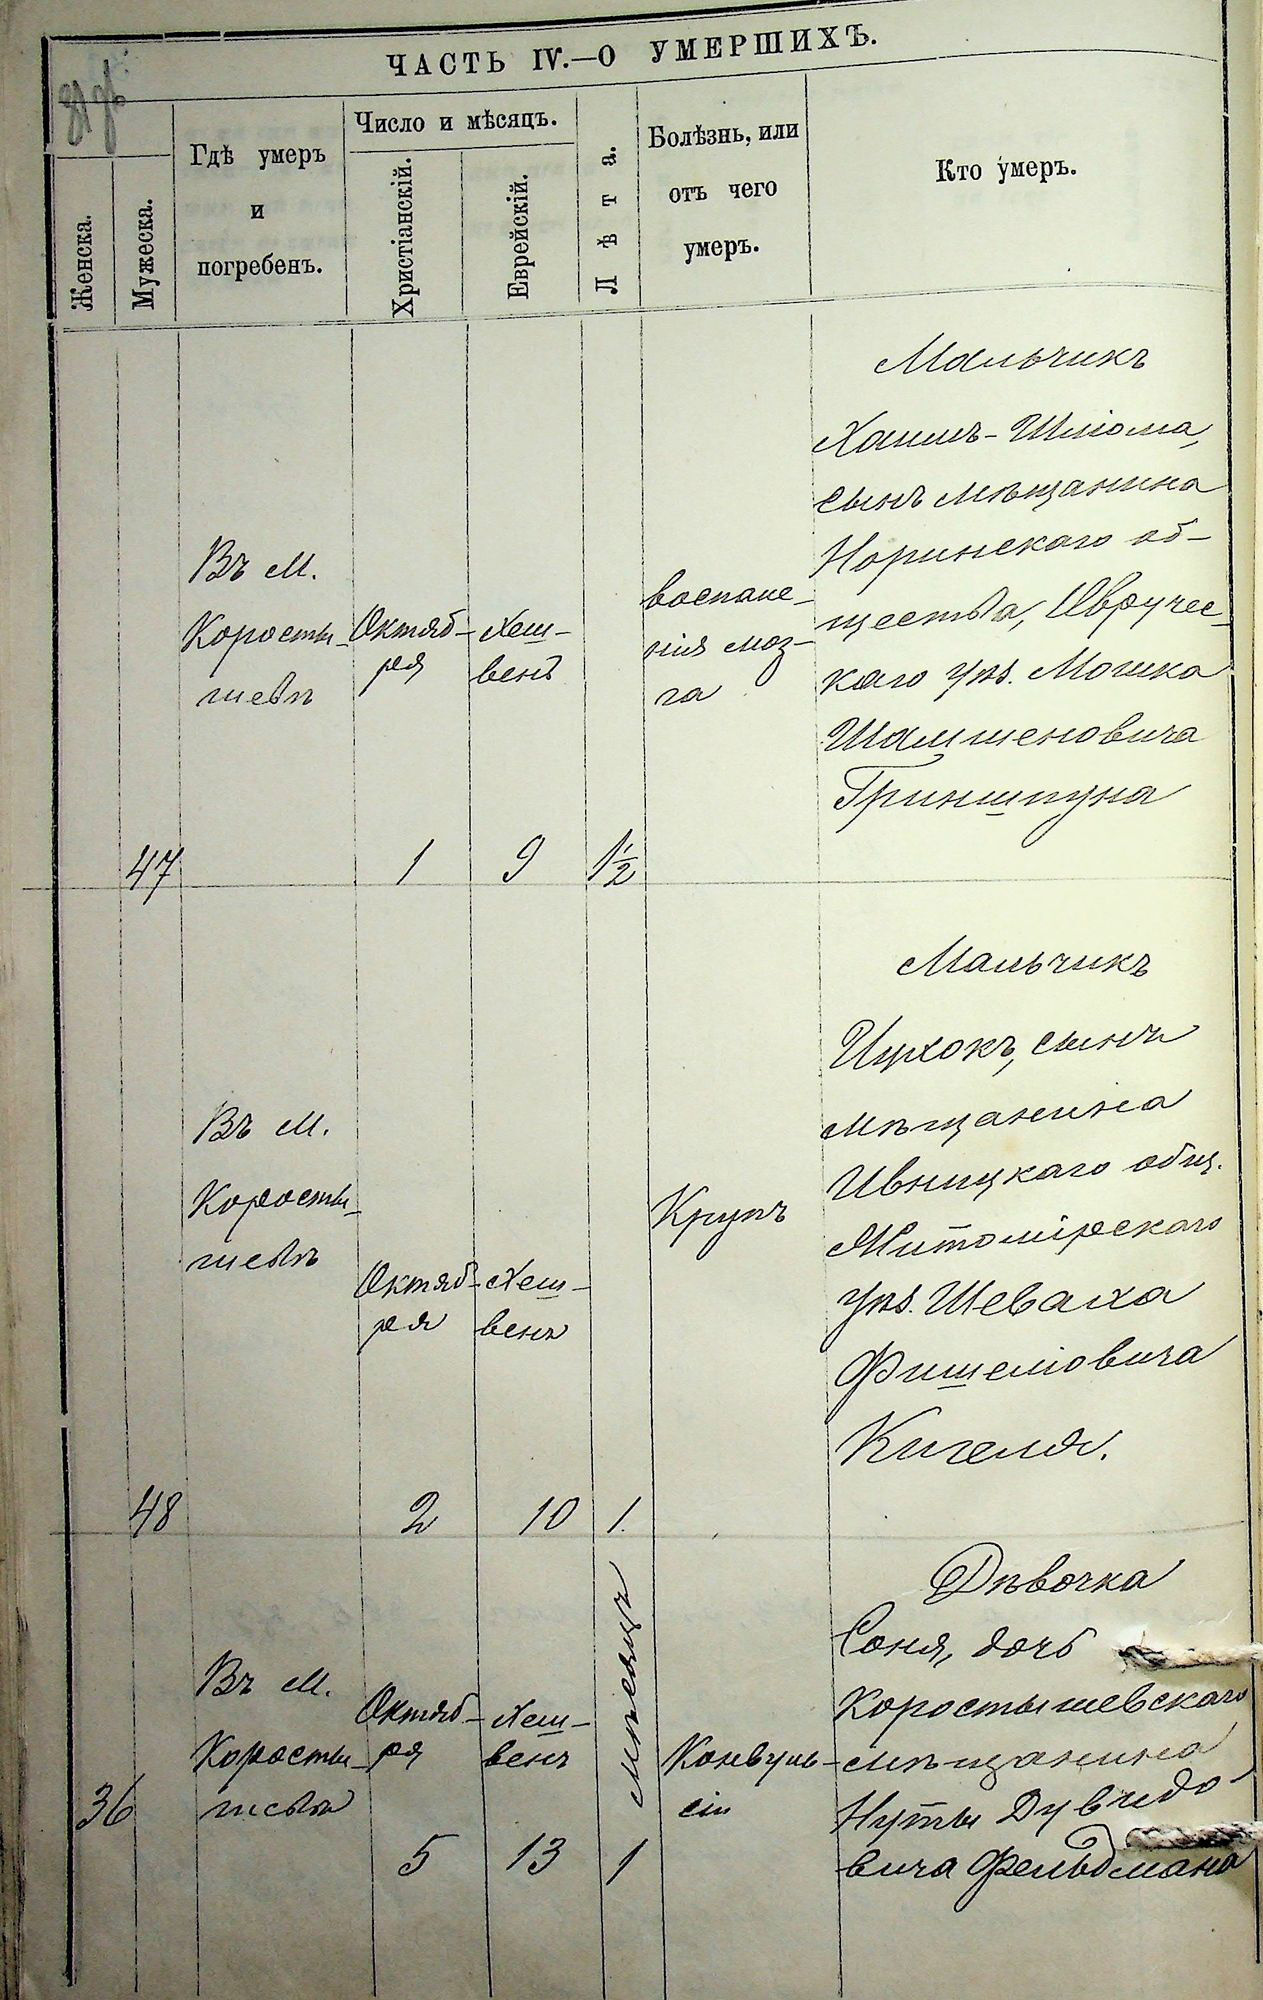 ЧАСТЬ IV.—О УМЕРШИХЪ.
Женска.
Мужеска.
Гдѣ умеръ
и
погребенъ.
Число и мѣсяцъ.
Христіанскій.
Еврейскій.
Лѣта.
Болѣзнь, или
отъ чего
умеръ.
Кто умеръ.
47
Въ м.
Коросты-
шевѣ
Октяб-
ря
1
Хеш-
венъ
9
1½
воспале-
нія моз-
га
Мальчикъ
Хаимъ-Шліома,
сынъ мѣщанина
Норинскаго об-
щества, Овручес-
каго уѣз. Мошка
Шамшеновича
Гриншпуна
48
Въ м.
Коросты-
шевѣ
Октяб-
ря
2
Хеш-
венъ
10
1.
Крупъ
Мальчикъ
Ицхокъ, сынъ
мѣщанина
Ивницкаго общ.
Житомірскаго
уѣз. Шеваха
Фишеліовича
Кигеля.
36
Въ м.
Коросты-
шевѣ
Октяб-
ря
5
Хеш-
венъ
13
мѣсяцъ
1
Конвуль-
сіи
Дѣвочка
Соня, дочь
Коростышевскаго
мѣщанина
Нуты Дувидо-
вича Фельдмана